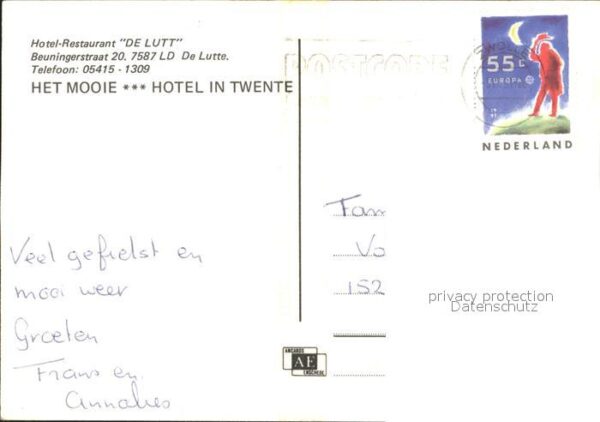 Hotel-Restaurant "DE LUTT"
Beuningerstraat 20. 7587 LD De Lutte.
Telefoon: 05415 - 1309
HET MOOIE *** HOTEL IN TWENTE
POSTCODE
55 c
EUROPA
NEDERLAND
Veel gefietst en
mooi weer
Groeten
Frans en
Annalies
Fam
Vo
152
privacy protection
Datenschutz
ANCARDS
AE
ENSCHEDE